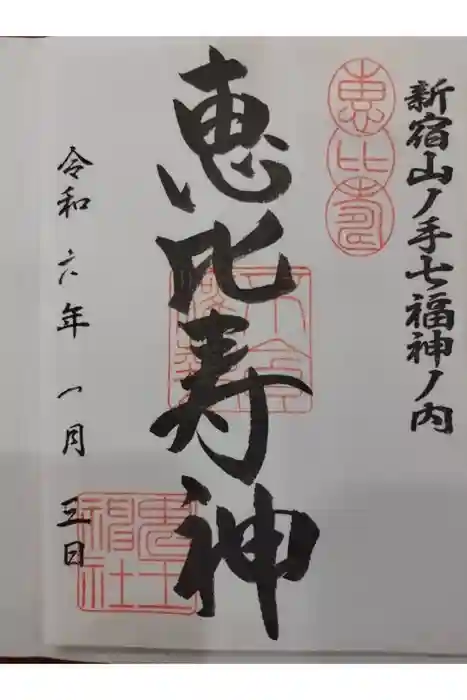 新宿山ノ手七福神ノ内
恵比寿
恵比寿神
令和六年一月三日
鬼王神社